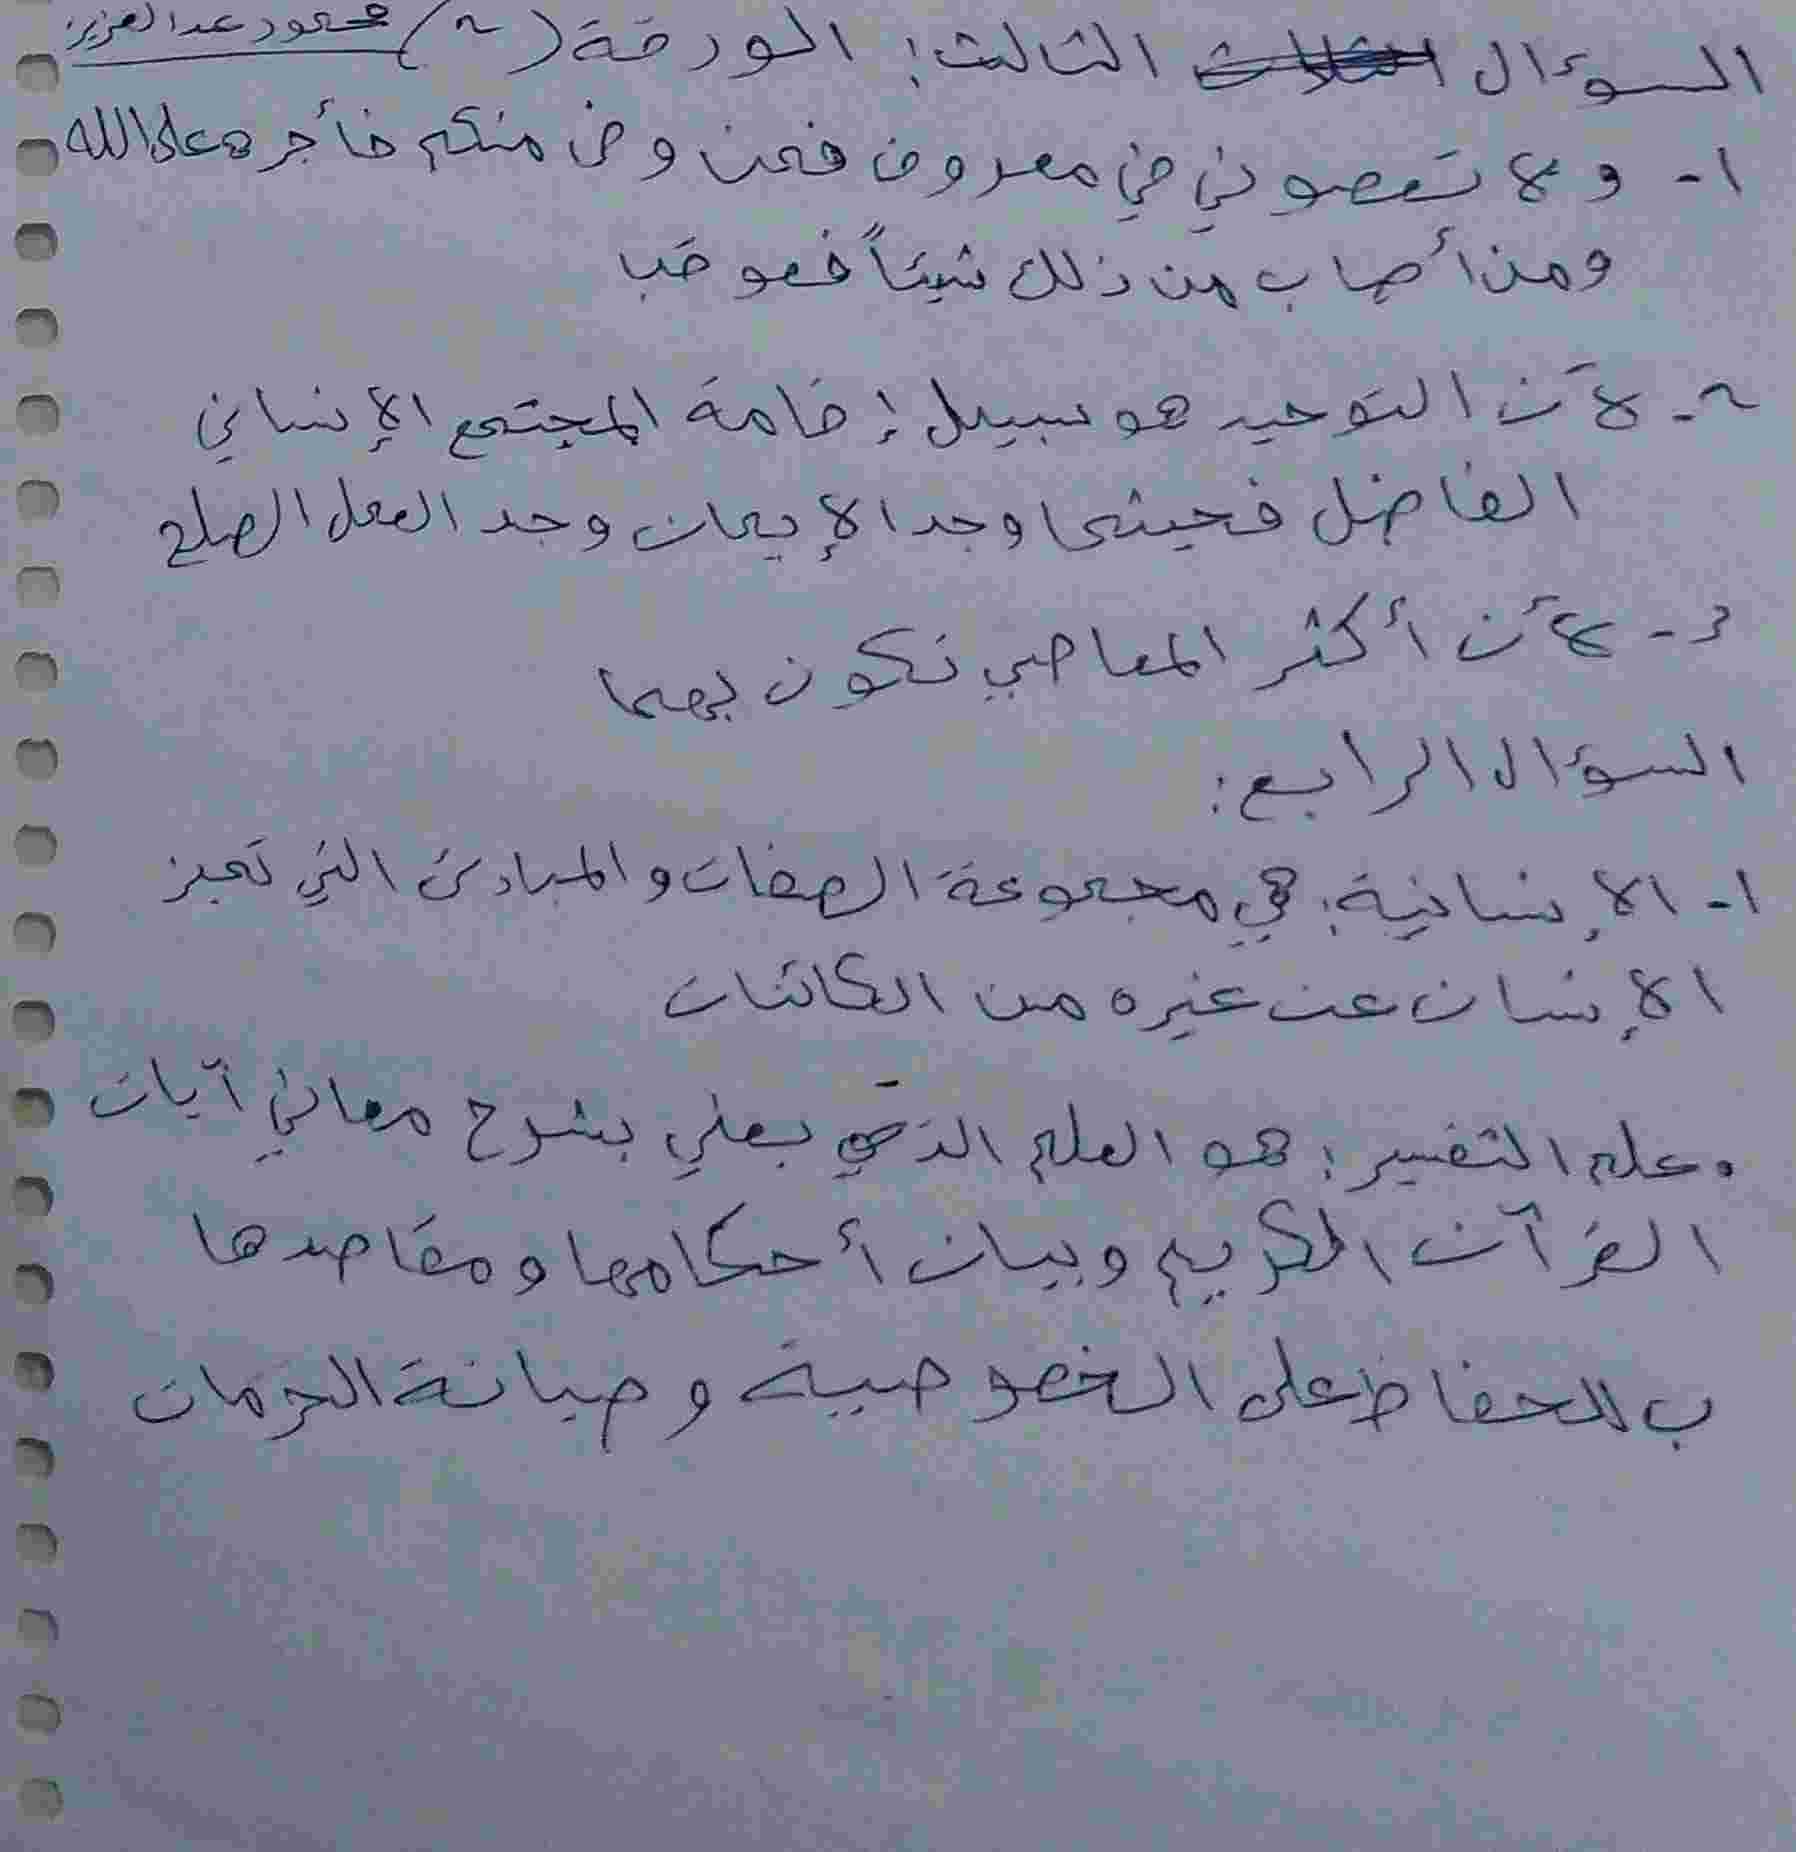 السؤال الثالث: الورقة (٢) محمود عبد العزيز
١- ولا تعصوني في معروف فمن وفى منكم فأجره على الله
ومن أصاب من ذلك شيئاً فعوقب
٢- لأن التوحيد هو سبيل إقامة المجتمع الإنساني
الفاضل فحيثما وجد الإيمان وجد العمل الصلح
٣- لأن أكثر المعاصي تكون بهما
السؤال الرابع:
١- الإنسانية: هي مجموعة الصفات والمبادئ التي تميز
الإنسان عن غيره من الكائنات
. علم التفسير: هو العلم الذي يعني بشرح معاني آيات
القرآن الكريم وبيان أحكامها ومقاصدها
ب للحفاظ على الخصوصية وصيانة الحرمات